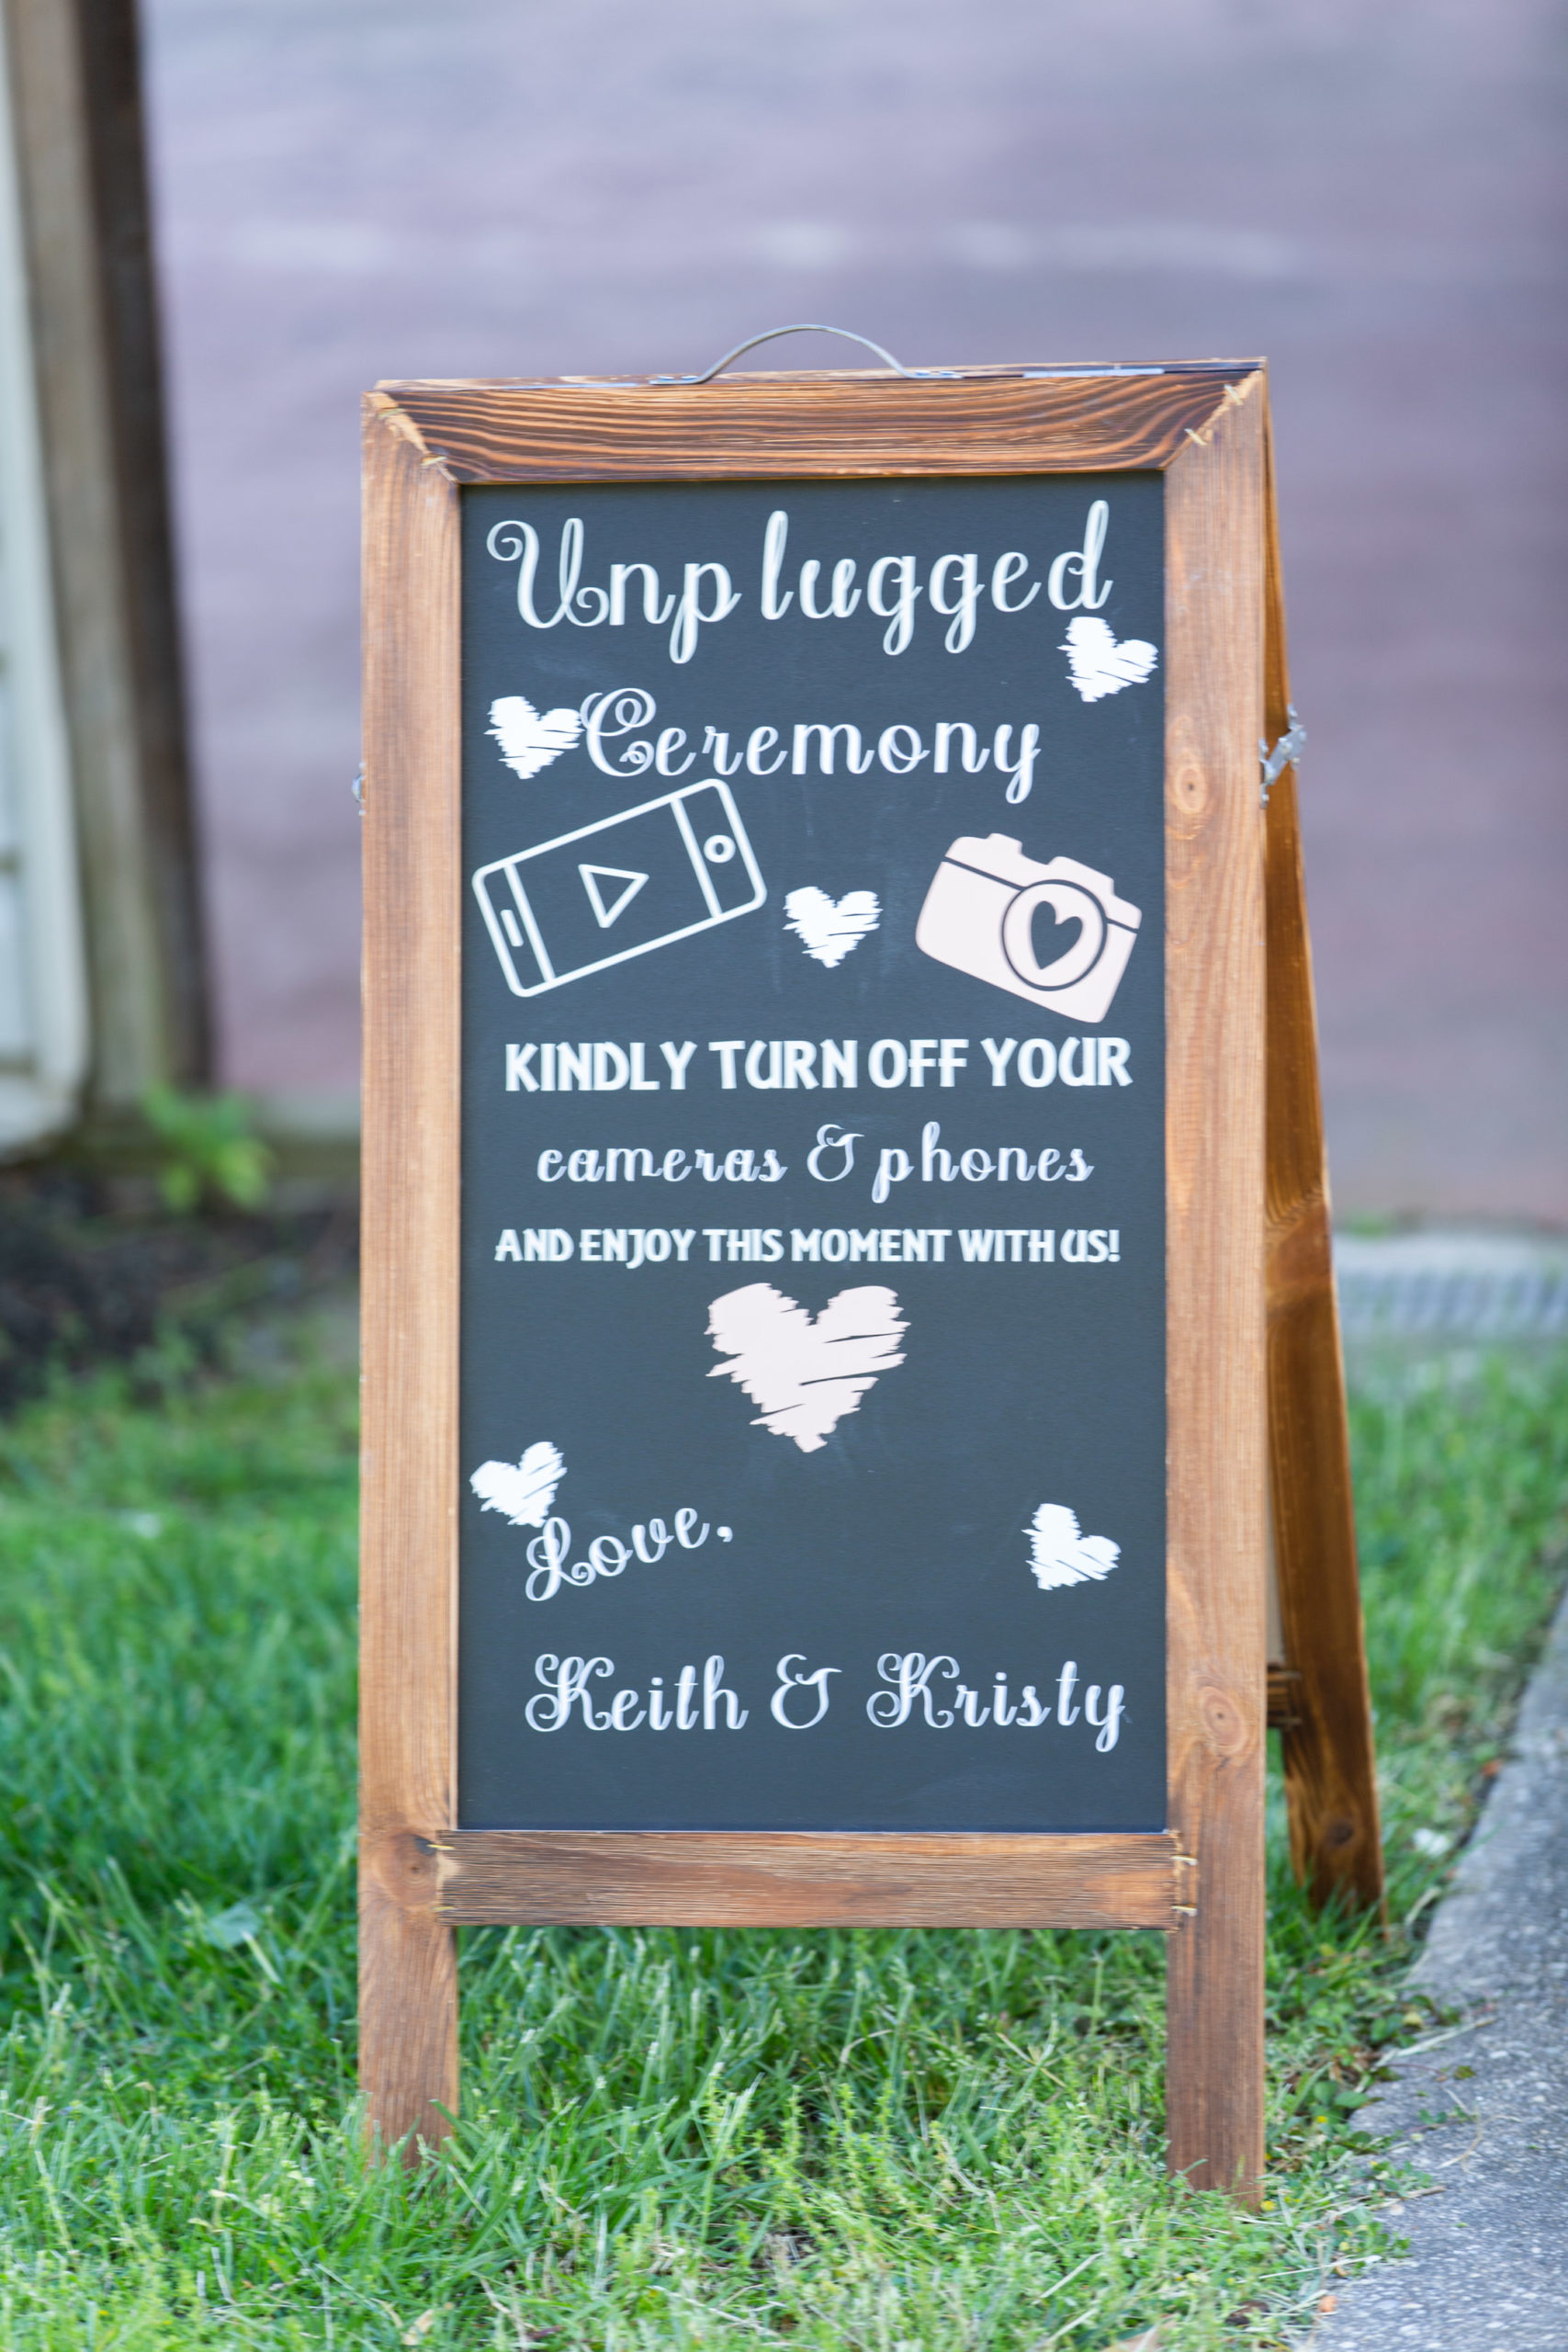 Unplugged
Ceremony
KINDLY TURN OFF YOUR
cameras & phones
AND ENJOY THIS MOMENT WITH US!
Love,
Keith & Kristy